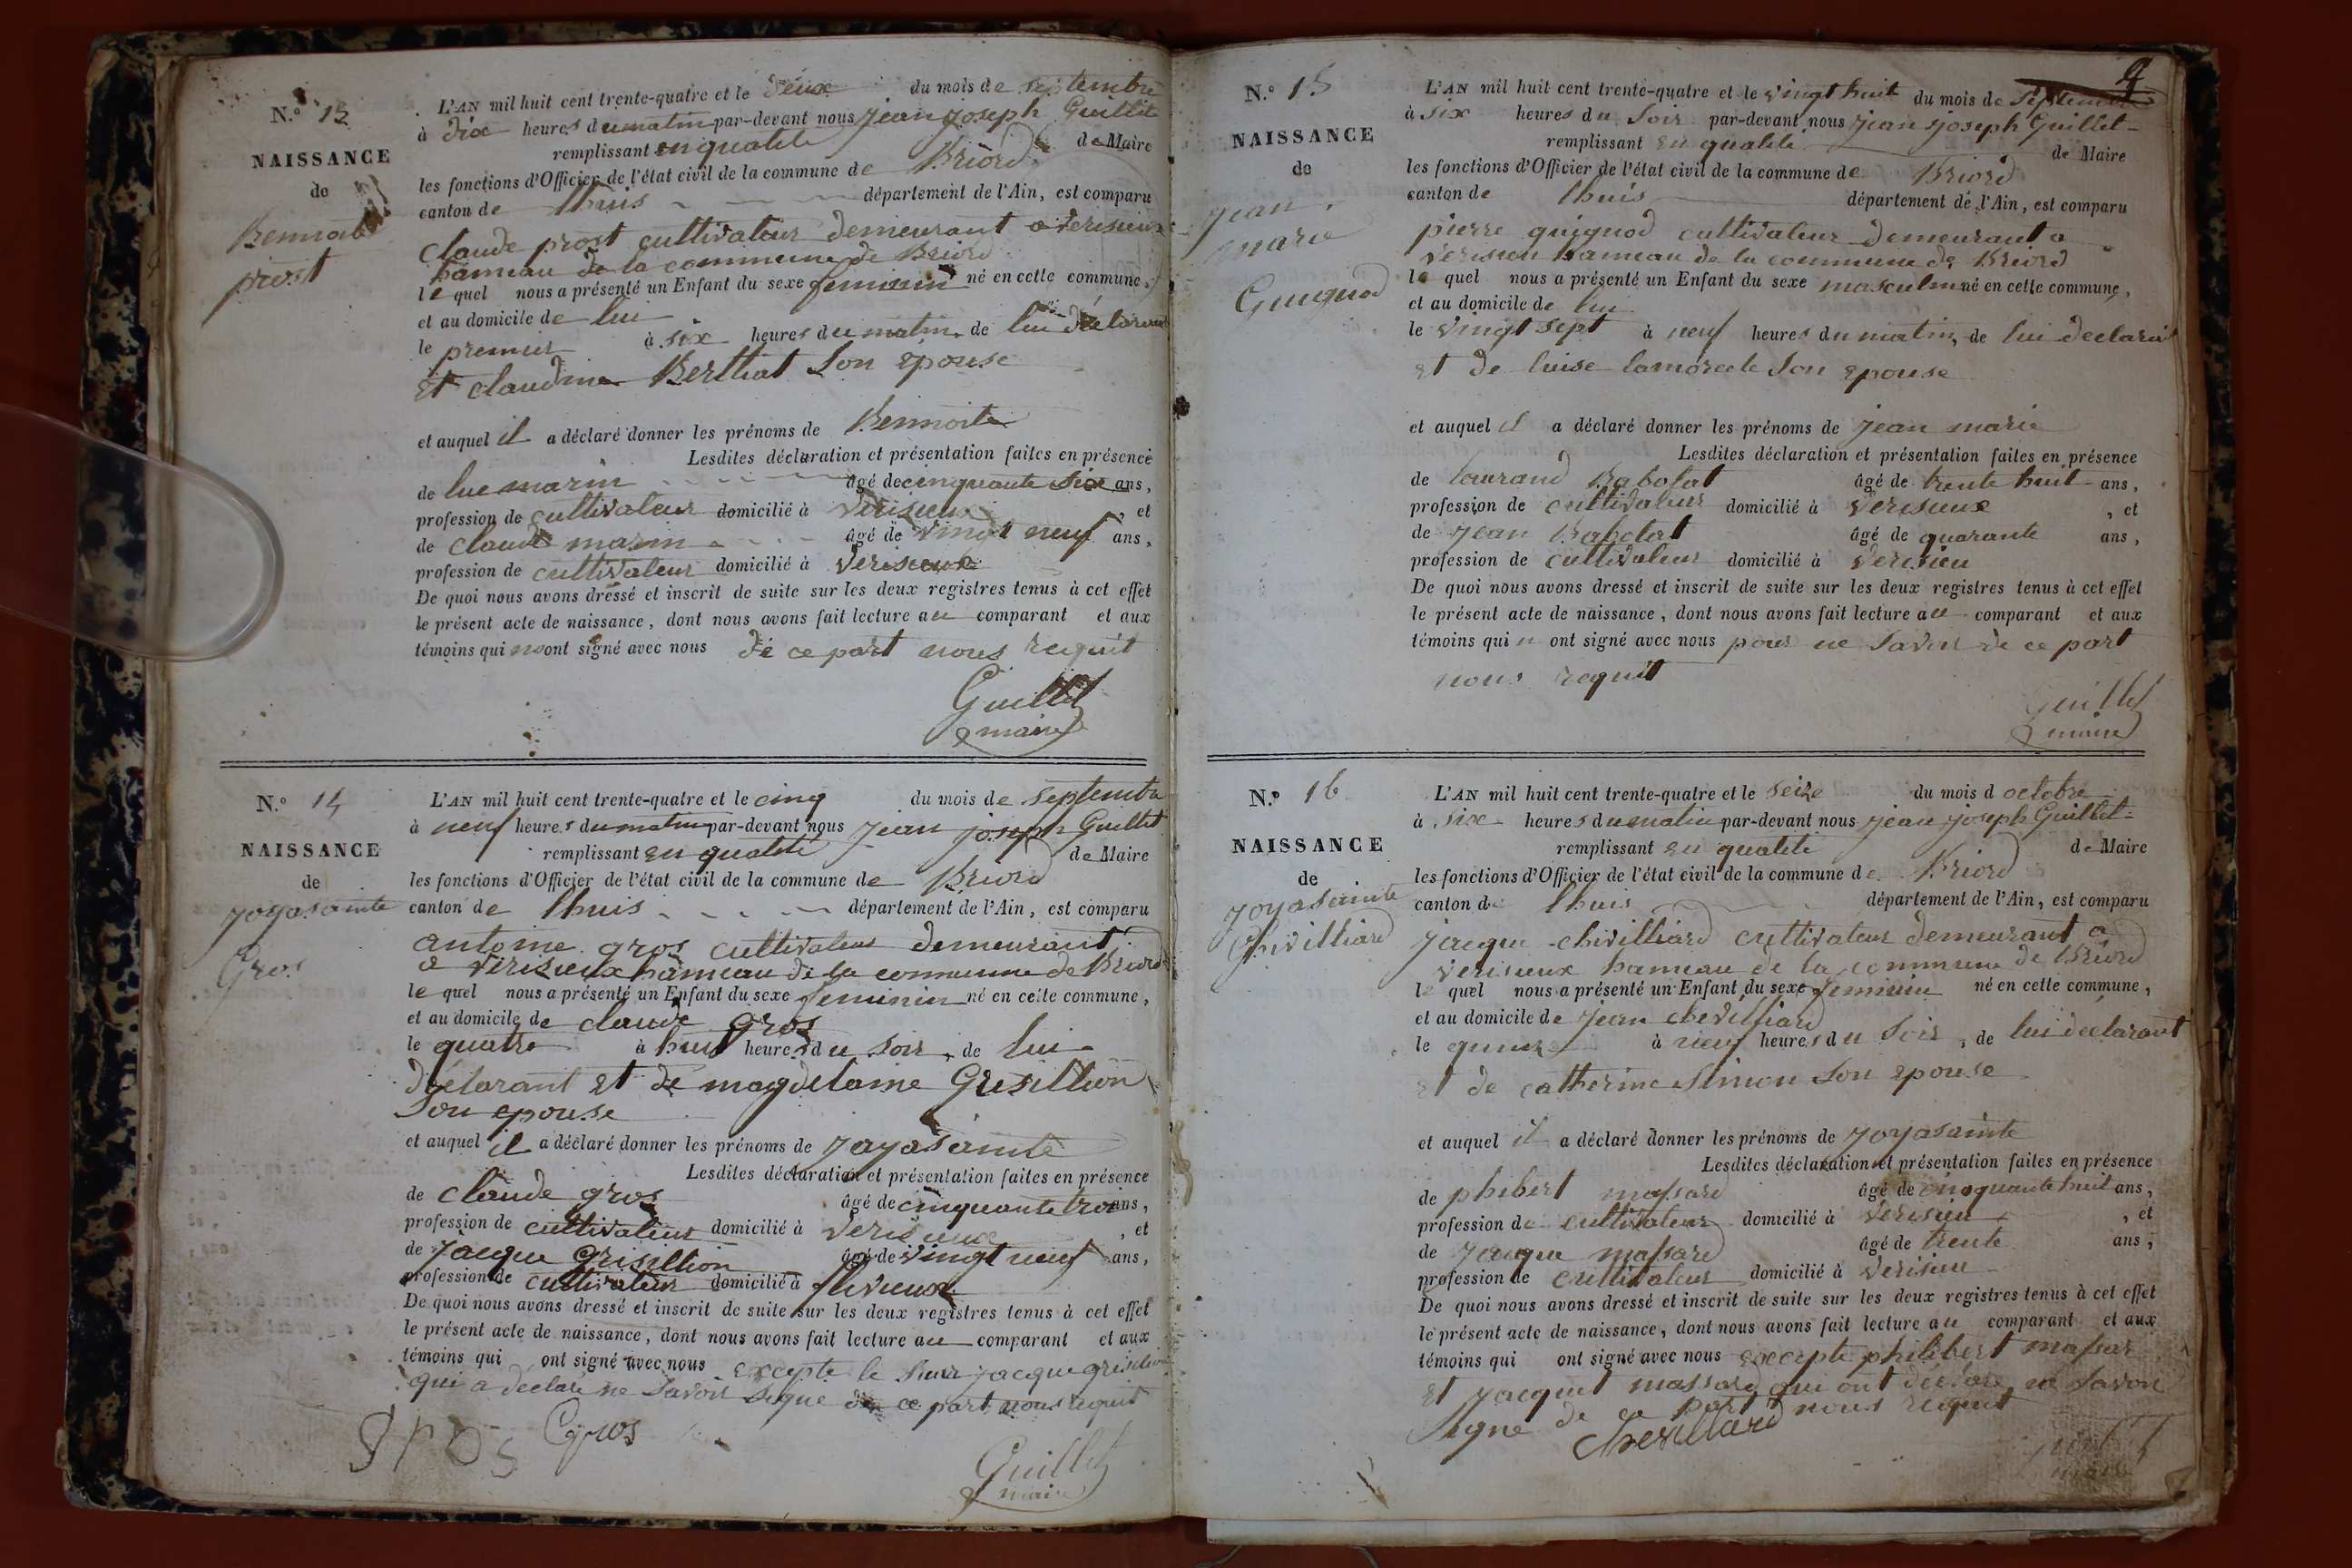 N.° 13
NAISSANCE
de
Bennoite
prost
L'AN mil huit cent trente-quatre et le deux du mois de septembre
à dix heures du matin par-devant nous jean joseph Guillet
remplissant en qualité de Maire
les fonctions d'Officier de l'état civil de la commune de Briord
canton de lhuis département de l'Ain, est comparu
claude prost cultivateur demeurant a verisieux
hameau de la commune de Briord
le quel nous a présenté un Enfant du sexe feminin né en cette commune,
et au domicile de lui
le premier à six heures du matin, de lui déclarant
et claudine Berthat son epouse
et auquel il a déclaré donner les prénoms de Bennoite
Lesdites déclaration et présentation faites en présence
de luc marin âgé de cinquante six ans,
profession de cultivateur domicilié à verisieux, et
de claude marin âgé de vingt neuf ans,
profession de cultivateur domicilié à verisieux
De quoi nous avons dressé et inscrit de suite sur les deux registres tenus à cet effet
le présent acte de naissance, dont nous avons fait lecture au comparant et aux
témoins qui nont signé avec nous de ce part nous requit
Guillet
maire
N.° 14
NAISSANCE
de
joyasainte
Gros
L'AN mil huit cent trente-quatre et le cinq du mois de septembre
à neuf heures du matin par-devant nous jean joseph Guillet
remplissant en qualité de Maire
les fonctions d'Officier de l'état civil de la commune de Briord
canton de lhuis département de l'Ain, est comparu
antoine gros cultivateur demeurant
a verisieux hameau de la commune de Briord
le quel nous a présenté un Enfant du sexe feminin né en cette commune,
et au domicile de claude gros
le quatre à huit heures du soir, de lui
déclarant et de magdelaine Gresillion
son epouse
et auquel il a déclaré donner les prénoms de joyasainte
Lesdites déclaration et présentation faites en présence
de claude gros âgé de cinquante trois ans,
profession de cultivateur domicilié à verisieux, et
de jacque grisillion âgé de vingt neuf ans,
profession de cultivateur domicilié à flevieux
De quoi nous avons dressé et inscrit de suite sur les deux registres tenus à cet effet
le présent acte de naissance, dont nous avons fait lecture au comparant et aux
témoins qui ont signé avec nous excepte le sieur jacque grisillion
qui a déclaré ne savoir signe de ce part nous requit
gros Gros
Guillet
maire
9
N.° 15
NAISSANCE
de
jean
marie
Guiguod
L'AN mil huit cent trente-quatre et le vingt huit du mois de septembre
à six heures du soir par-devant nous jean joseph Guillet
remplissant en qualité de Maire
les fonctions d'Officier de l'état civil de la commune de Briord
canton de lhuis département de l'Ain, est comparu
pierre guiguod cultivateur demeurant a
verisieu hameau de la commune de Briord
le quel nous a présenté un Enfant du sexe masculin né en cette commune,
et au domicile de lui
le vingt sept à neuf heures du matin, de lui declarant
et de luise lamorcele son epouse
et auquel il a déclaré donner les prénoms de jean marie
Lesdites déclaration et présentation faites en présence
de laurand Babolat âgé de trente huit ans,
profession de cultivateur domicilié à verisieux, et
de jean Babolat âgé de quarante ans,
profession de cultivateur domicilié à verisieu
De quoi nous avons dressé et inscrit de suite sur les deux registres tenus à cet effet
le présent acte de naissance, dont nous avons fait lecture au comparant et aux
témoins qui n ont signé avec nous pour ne savoir de ce part
nous requit
Guillet
maire
N.° 16
NAISSANCE
de
joyasainte
Chivilliard
L'AN mil huit cent trente-quatre et le seize du mois d octobre
à six heures du matin par-devant nous jean joseph Guillet
remplissant en qualité de Maire
les fonctions d'Officier de l'état civil de la commune de Briord
canton de lhuis département de l'Ain, est comparu
jacque chivilliard cultivateur demeurant a
verisieux hameau de la commune de Briord
le quel nous a présenté un Enfant du sexe feminin né en cette commune,
et au domicile de jean chevilliard
le quinze à neuf heures du soir, de lui déclarant
et de catherine Simon son epouse
et auquel il a déclaré donner les prénoms de joyasainte
Lesdites déclaration et présentation faites en présence
de phibert massard âgé de cinquante huit ans,
profession de cultivateur domicilié à verisieu, et
de jacque massard âgé de trente ans,
profession de cultivateur domicilié à verisieu
De quoi nous avons dressé et inscrit de suite sur les deux registres tenus à cet effet
le présent acte de naissance, dont nous avons fait lecture au comparant et aux
témoins qui ont signé avec nous excepte philibert massar
et jacquet massard qui ont déclare ne savoir
signe de ce part nous requit
Chevillard
maire